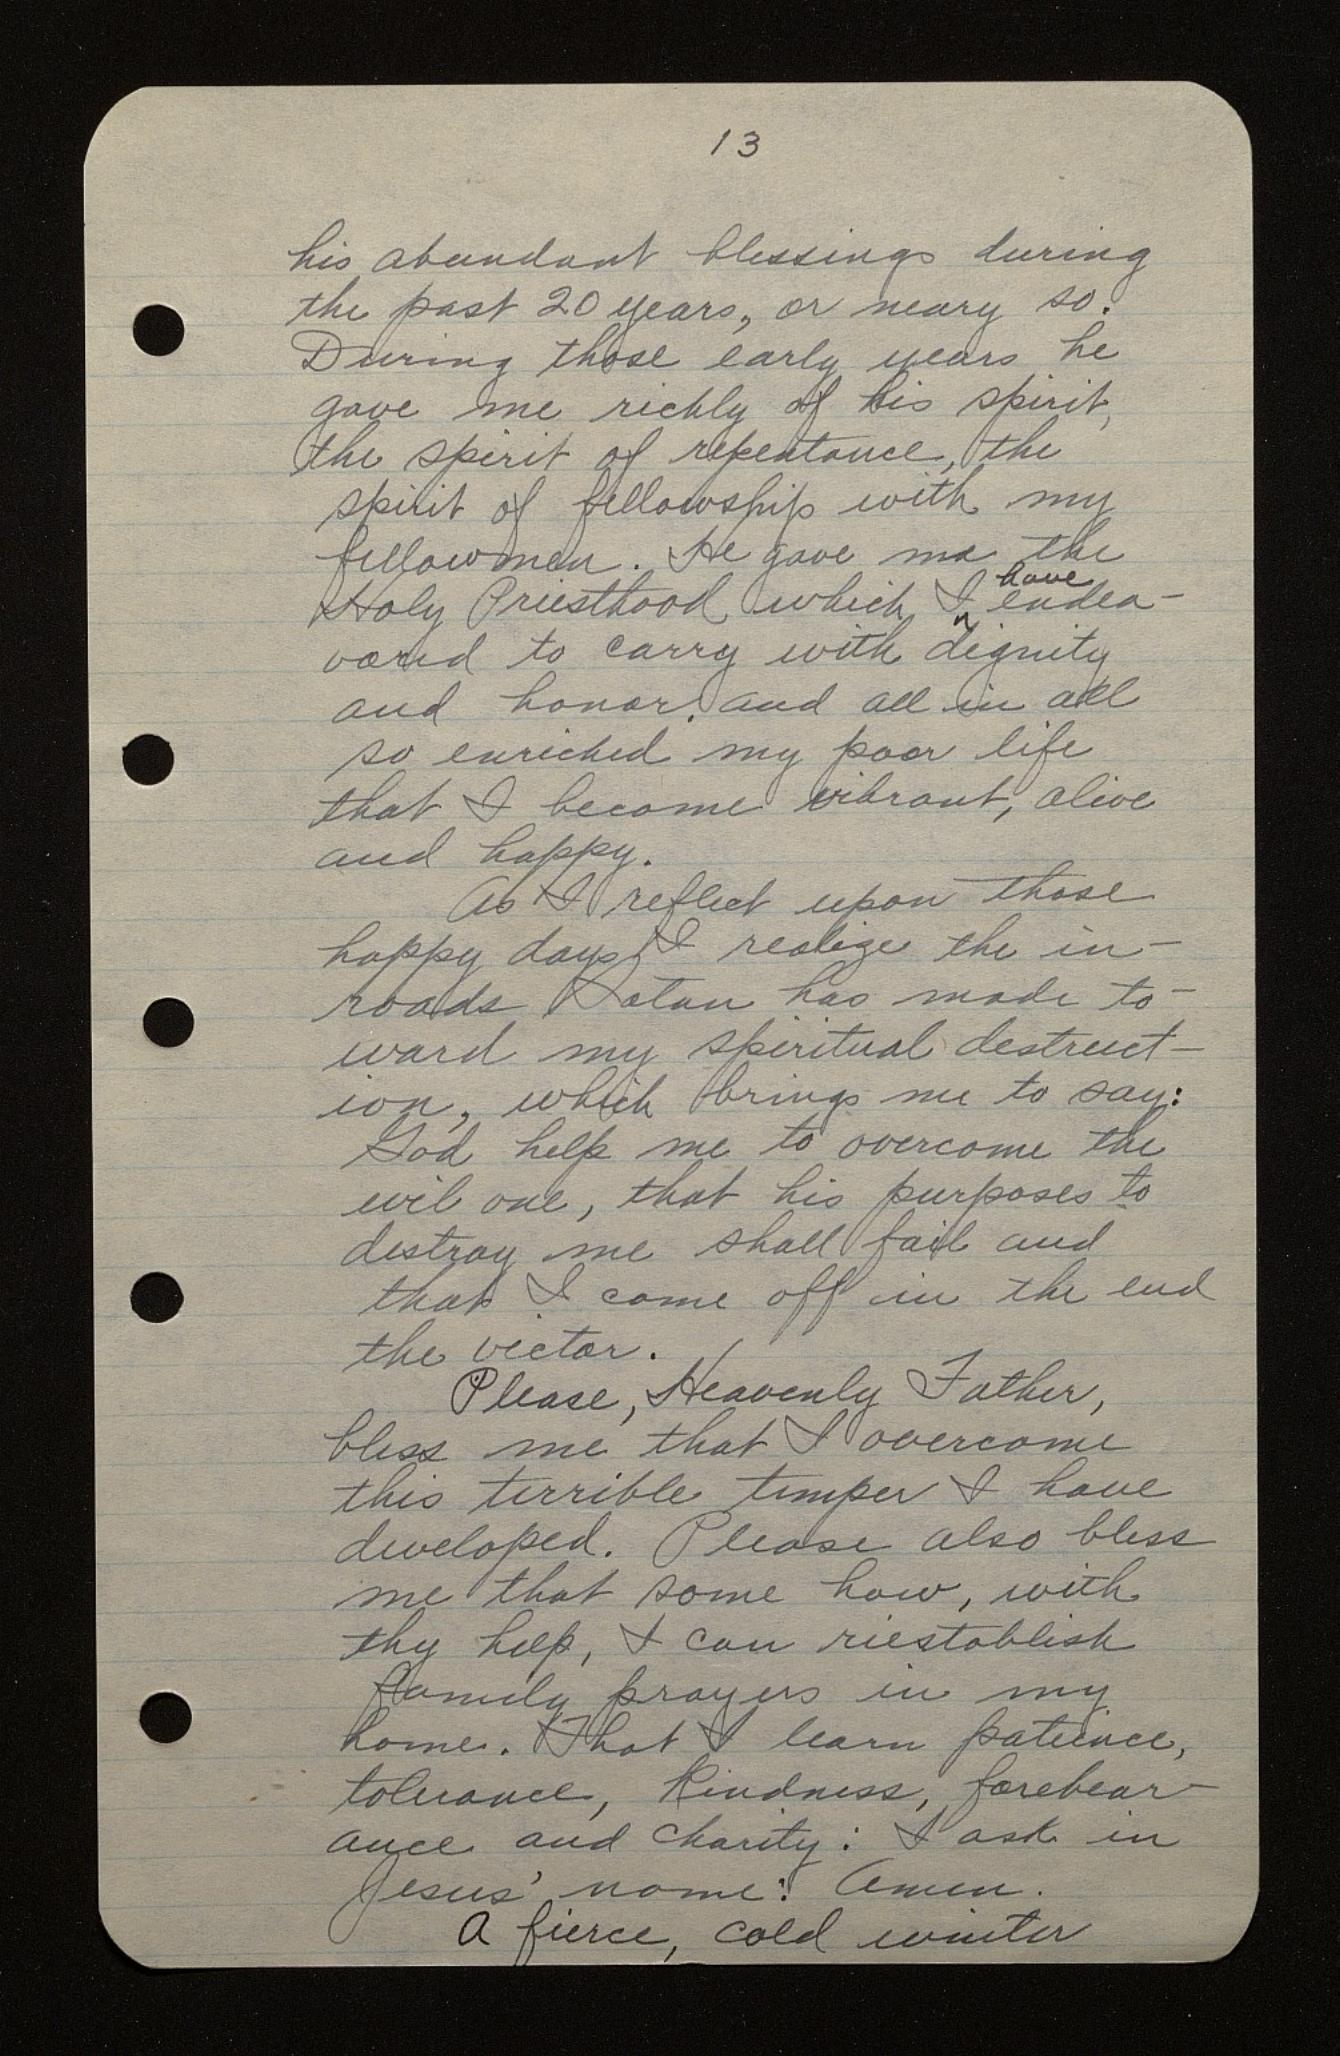 13
his abundant blessings during
the past 20 years, or neary so.
During those early years he
gave me richly of his spirit,
the spirit of repentance, the
spirit of fellowship with my
fellowmen. He gave me the
Holy Priesthood which I have endea-
vored to carry with dignity
and honor. and all in all
so enriched my poor life
that I become vibrant, alive
and happy.
As I reflect upon those
happy days, I realize the in-
roads Satan has made to-
ward my spiritual destruct-
ion, which brings me to say:
God help me to overcome the
evil one, that his purposes to
destroy me shall fail and
that I come off in the end
the victor.
Please, Heavenly Father,
bless me that I overcome
this terrible temper I have
developed. Please also bless
me that some how, with
thy help, I can riestablish
family prayers in my
home. That I learn patience,
tolerance, kindness, forebear-
ance and charity: I ask in
Jesus' name: Amen.
A fierce, cold winter